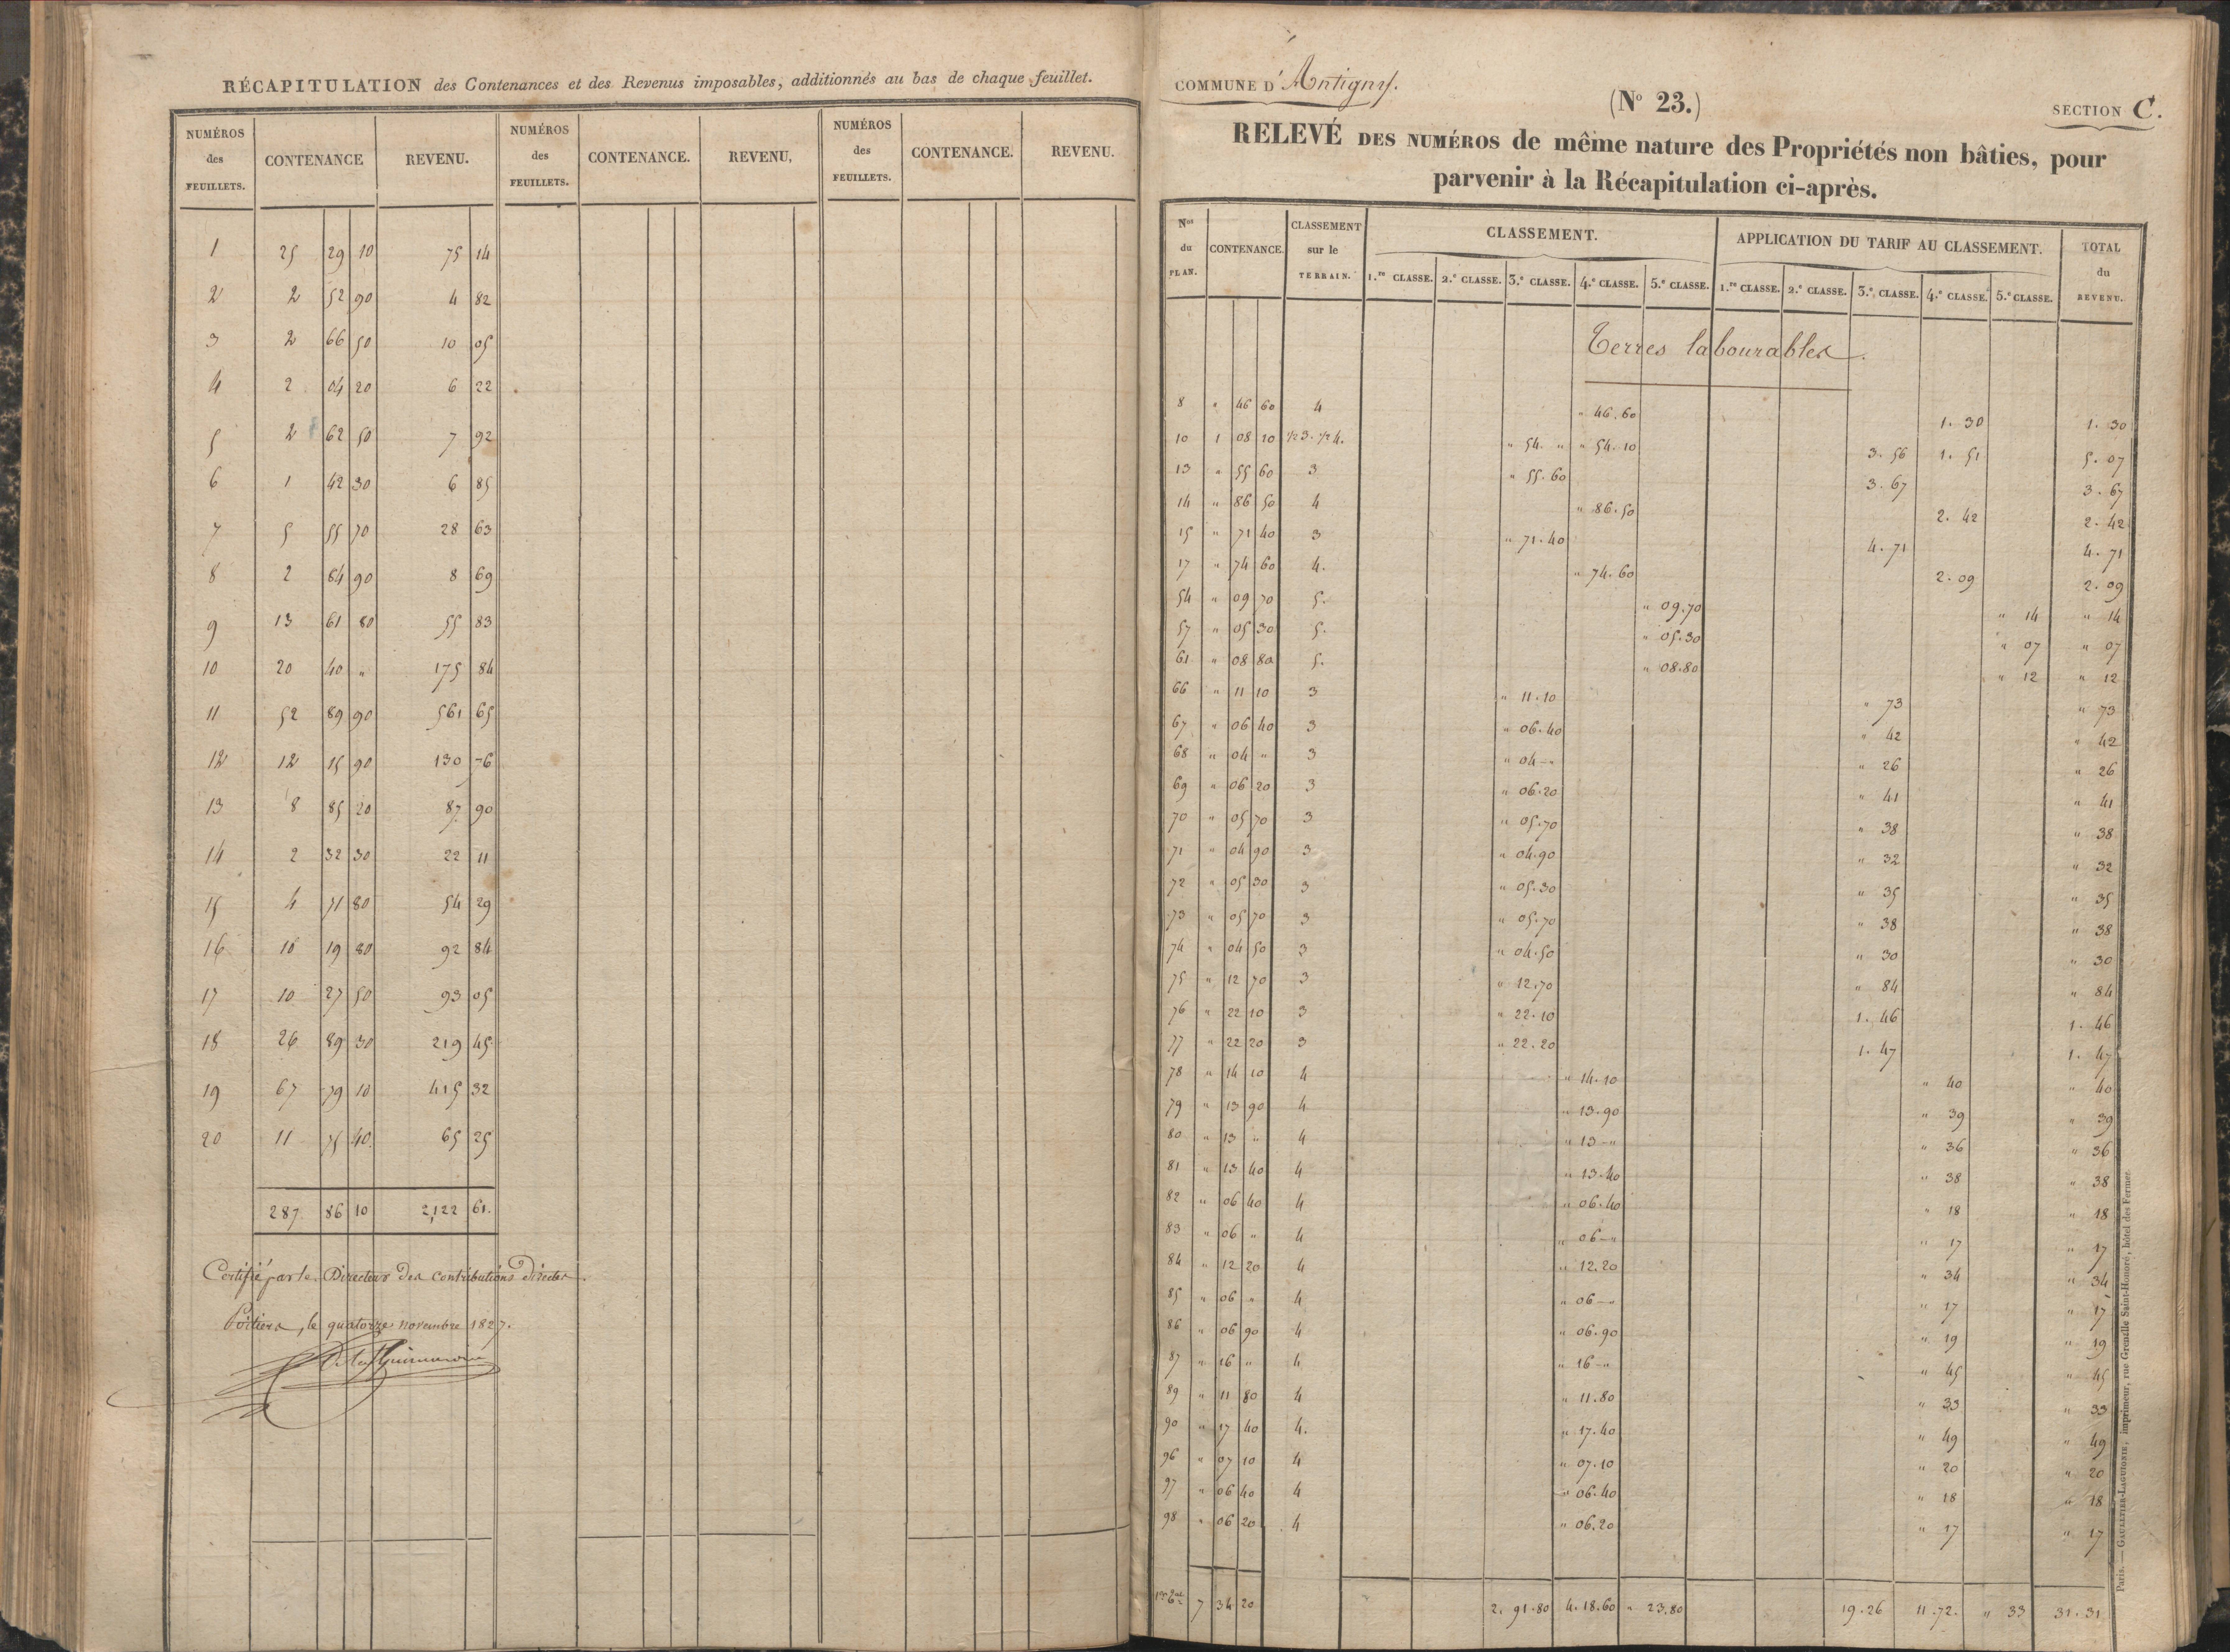 RÉCAPITULATION des Contenances et des Revenus imposables, additionnés au bas de chaque feuillet.
NUMÉROS des FEUILLETS. CONTENANCE REVENU. NUMÉROS des FEUILLETS. CONTENANCE. REVENU, NUMÉROS des FEUILLETS. CONTENANCE. REVENU.
1 25 29 10 75 14
2 2 52 90 4 82
3 2 66 50 10 05
4 2 04 20 6 22
5 2 62 50 7 92
6 1 42 30 6 85
7 5 55 70 28 63
8 2 84 90 8 69
9 13 61 80 55 83
10 20 40 " 175 84
11 52 89 90 561 65
12 12 15 90 130 76
13 8 85 20 87 90
14 2 32 30 22 11
15 4 71 80 54 29
16 10 19 80 92 84
17 10 27 50 93 05
18 26 89 30 219 45
19 67 79 10 415 32
20 11 75 40 65 25
287 86 10 2,122 61.
Certifié par le Directeur des contributions directes.
Poitiers, le quatorze novembre 1827.
COMMUNE D' Antigny.
(No 23.)
SECTION C.
RELEVÉ DES NUMÉROS de même nature des Propriétés non bâties, pour
parvenir à la Récapitulation ci-après.
Nos du PLAN. CONTENANCE. CLASSEMENT sur le TERRAIN. CLASSEMENT. APPLICATION DU TARIF AU CLASSEMENT. TOTAL du REVENU.
1.re CLASSE. 2.e CLASSE. 3.e CLASSE. 4.e CLASSE. 5.e CLASSE. 1.re CLASSE. 2.e CLASSE. 3.e CLASSE. 4.e CLASSE. 5.e CLASSE.
Terres labourables.
8 " 46 60 4 " 46.60 1. 30 1. 30
10 1 08 10 1/2 3. 1/2 4. " 54. " " 54.10 3. 56 1. 51 5. 07
13 " 55 60 3 " 55.60 3. 67 3. 67
14 " 86 50 4 " 86.50 2. 42 2. 42
15 " 71 40 3 " 71.40 4. 71 4. 71
17 " 74 60 4. " 74.60 2. 09 2. 09
54 " 09 70 5. " 09.70 " 14 " 14
57 " 05 30 5. " 05.30 " 07 " 07
61 " 08 80 5. " 08.80 " 12 " 12
66 " 11 10 3 " 11.10 " 73 " 73
67 " 06 40 3 " 06.40 " 42 " 42
68 " 04 " 3 " 04 - " " 26 " 26
69 " 06 20 3 " 06.20 " 41 " 41
70 " 05 70 3 " 05.70 " 38 " 38
71 " 04 90 3 " 04.90 " 32 " 32
72 " 05 30 3 " 05.30 " 35 " 35
73 " 05 70 3 " 05.70 " 38 " 38
74 " 04 50 3 " 04.50 " 30 " 30
75 " 12 70 3 " 12.70 " 84 " 84
76 " 22 10 3 " 22.10 1. 46 1. 46
77 " 22 20 3 " 22.20 1. 47 1. 47
78 " 14 10 4 " 14.10 " 40 " 40
79 " 13 90 4 " 13.90 " 39 " 39
80 " 13 " 4 " 13 - " " 36 " 36
81 " 13 40 4 " 13.40 " 38 " 38
82 " 06 40 4 " 06.40 " 18 " 18
83 " 06 " 4 " 06 - " " 17 " 17
84 " 12 20 4 " 12.20 " 34 " 34
85 " 06 " 4 " 06 - " " 17 " 17
86 " 06 90 4 " 06.90 " 19 " 19
87 " 16 " 4 " 16 - " " 45 " 45
89 " 11 80 4 " 11.80 " 33 " 33
90 " 17 40 4. " 17.40 " 49 " 49
96 " 07 10 4 " 07.10 " 20 " 20
97 " 06 40 4 " 06.40 " 18 " 18
98 " 06 20 4 " 06.20 " 17 " 17
7 34 20 2. 91.80 4. 18.60 " 23.80 19.26 11.72. " 33 31.31
Paris. — GAULTIER-LAGUIONIE, imprimeur, rue Grenelle Saint-Honoré, hôtel des Fermes.